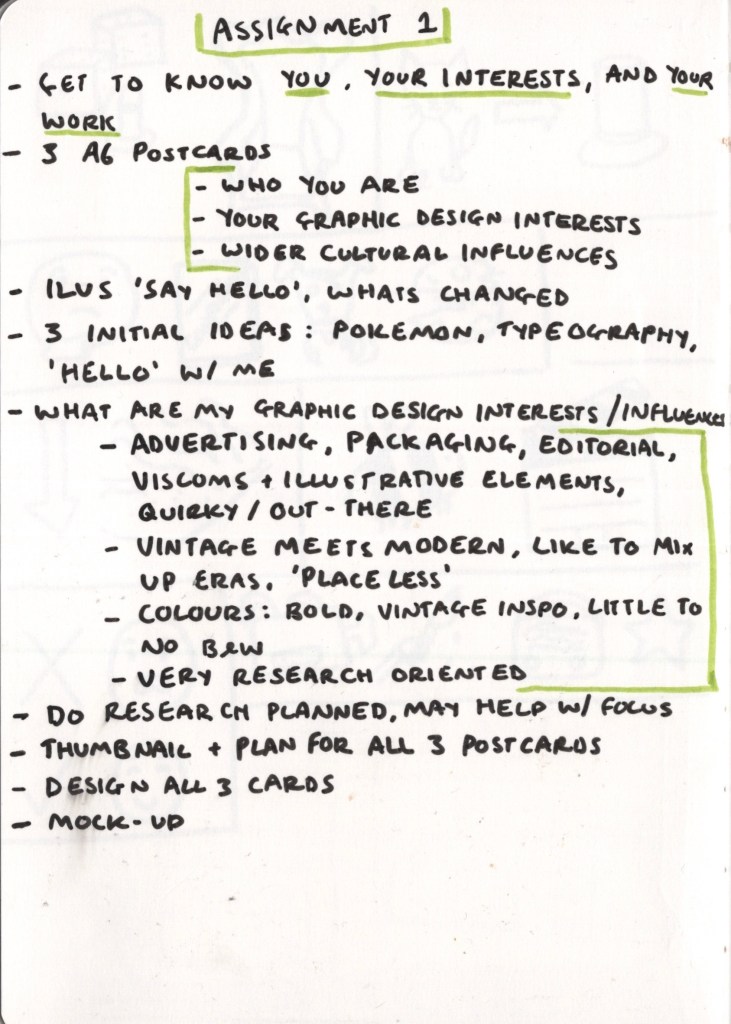 ASSIGNMENT 1
- GET TO KNOW YOU, YOUR INTERESTS, AND YOUR
WORK
- 3 A6 POSTCARDS
- WHO YOU ARE
- YOUR GRAPHIC DESIGN INTERESTS
- WIDER CULTURAL INFLUENCES
- ILUS 'SAY HELLO', WHATS CHANGED
- 3 INITIAL IDEAS: POKEMON, TYPEOGRAPHY,
'HELLO' W/ ME
- WHAT ARE MY GRAPHIC DESIGN INTERESTS/INFLUENCES
- ADVERTISING, PACKAGING, EDITORIAL,
VISCOMS + ILLUSTRATIVE ELEMENTS,
QUIRKY/OUT-THERE
- VINTAGE MEETS MODERN, LIKE TO MIX
UP ERAS. 'PLACELESS'
- COLOURS: BOLD, VINTAGE INSPO, LITTLE TO
NO B&W
- VERY RESEARCH ORIENTED
- DO RESEARCH PLANNED, MAY HELP W/ FOCUS
- THUMBNAIL + PLAN FOR ALL 3 POSTCARDS
- DESIGN ALL 3 CARDS
- MOCK-UP